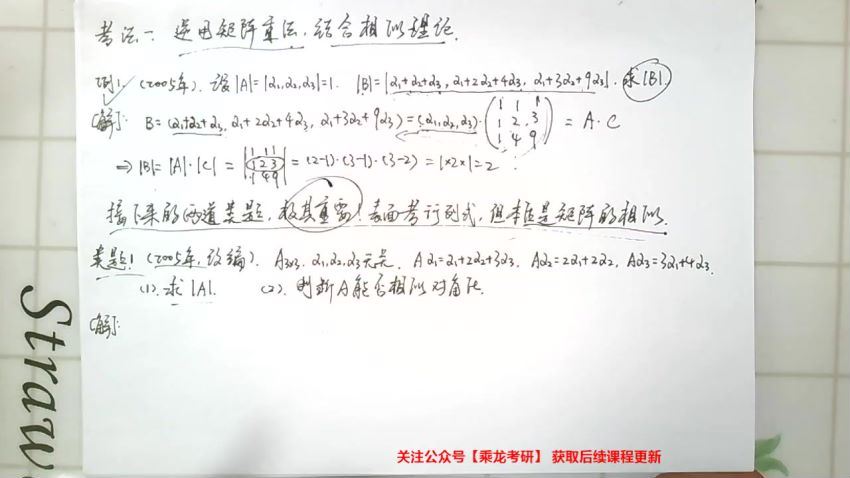 考法一、逆用矩阵乘法,结合相似理论.
例1. (2005年). 设|A|=|α₁,α₂,α₃|=1. |B|=|α₁+α₂+α₃, α₁+2α₂+4α₃, α₁+3α₂+9α₃|. 求|B|.
[解]: B=(α₁+α₂+α₃, α₁+2α₂+4α₃, α₁+3α₂+9α₃)=(α₁,α₂,α₃)·(1 1 1
1 2 3
1 4 9) = A·C
⇒ |B|=|A|·|C| = |1 1 1
1 2 3
1 4 9| = (2-1)·(3-1)·(3-2) = 1×2×1=2
接下来的两道类题,极其重要!表面考行列式,但本质是矩阵的相似.
类题1 (2005年,改编). A₃ₓ₃. α₁,α₂,α₃无关. Aα₁=α₁+2α₂+3α₃, Aα₂=2α₁+2α₂, Aα₃=3α₁+4α₃.
(1). 求|A|. (2). 判断A能否相似对角化.
[解]:
Straw
关注公众号【乘龙考研】 获取后续课程更新